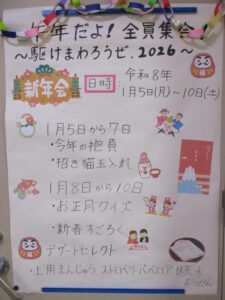 午年だよ！全員集会！
～駆けまわろうぜ、2026～
新年会
日時：令和8年
1月5日(月)～10日(土)
1月5日から7日
・今年の抱負
・招き猫玉入れ
1月8日から10日
・お正月クイズ
・新春すごろく
デザートセレクト
・上用まんじゅう ストロベリーババロア 抹茶